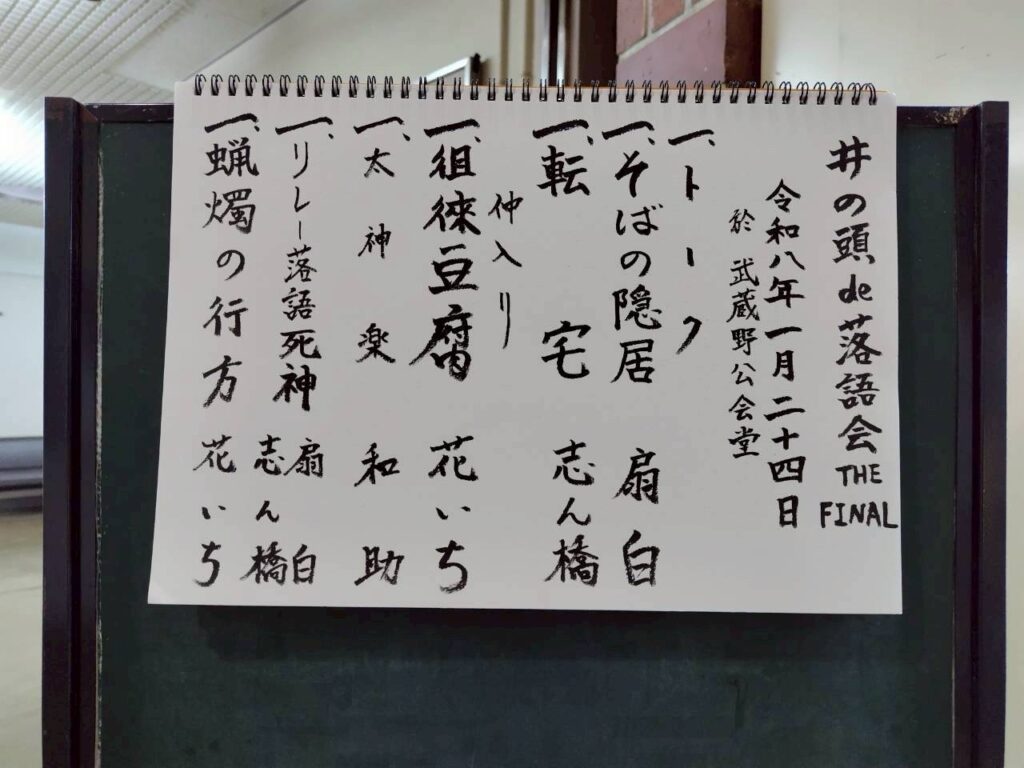 井の頭de落語会 THE FINAL
令和八年一月二十四日
於 武蔵野公会堂
一、トーク
一、そばの隠居 扇白
一、転宅 志ん橋
仲入り
一、徂徠豆腐 花いち
一、太神楽 和助
一、リレー落語死神 扇白 志ん橋
一、蝋燭の行方 花いち